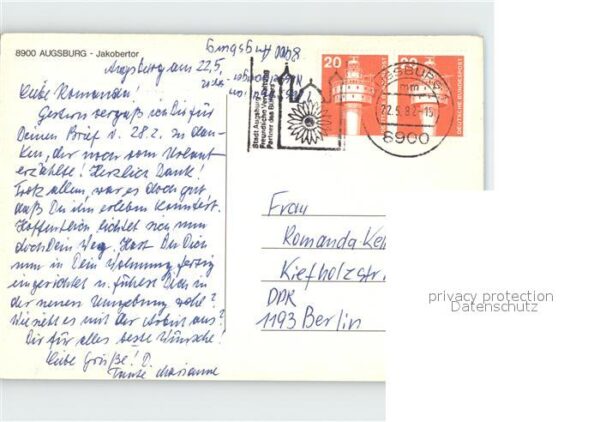 8900 AUGSBURG - Jakobertor
Augsburg am 22.5.
Liebe Romanda!
Gestern vergaß ich Dir für
Deinen Brief v. 28.2. zu dan-
ken, der noch vom Urlaub
erzählte! Herzlich Dank!
Trotz allem, war es doch gut
daß Du ihn erleben konntest.
Hoffentlich lichtet sich nun
doch Dein Weg. Hast Du Dich
nun in Dein Wohnung fertig
eingerichtet u. fühlst Dich in
der neuen Umgebung wohl?
Wie sieht es mit der Arbeit aus?
Dir für alles beste Wünsche!
Liebe Grüße! D.
Tante Marianne
8900 Augsburg
20
20
DEUTSCHE BUNDESPOST
Stadt Augsburg
AUGSBURG
mm
22.5.8
8900
Frau
Romanda
Kiefholzstr
DDR
1193 Berlin
privacy protection
Datenschutz